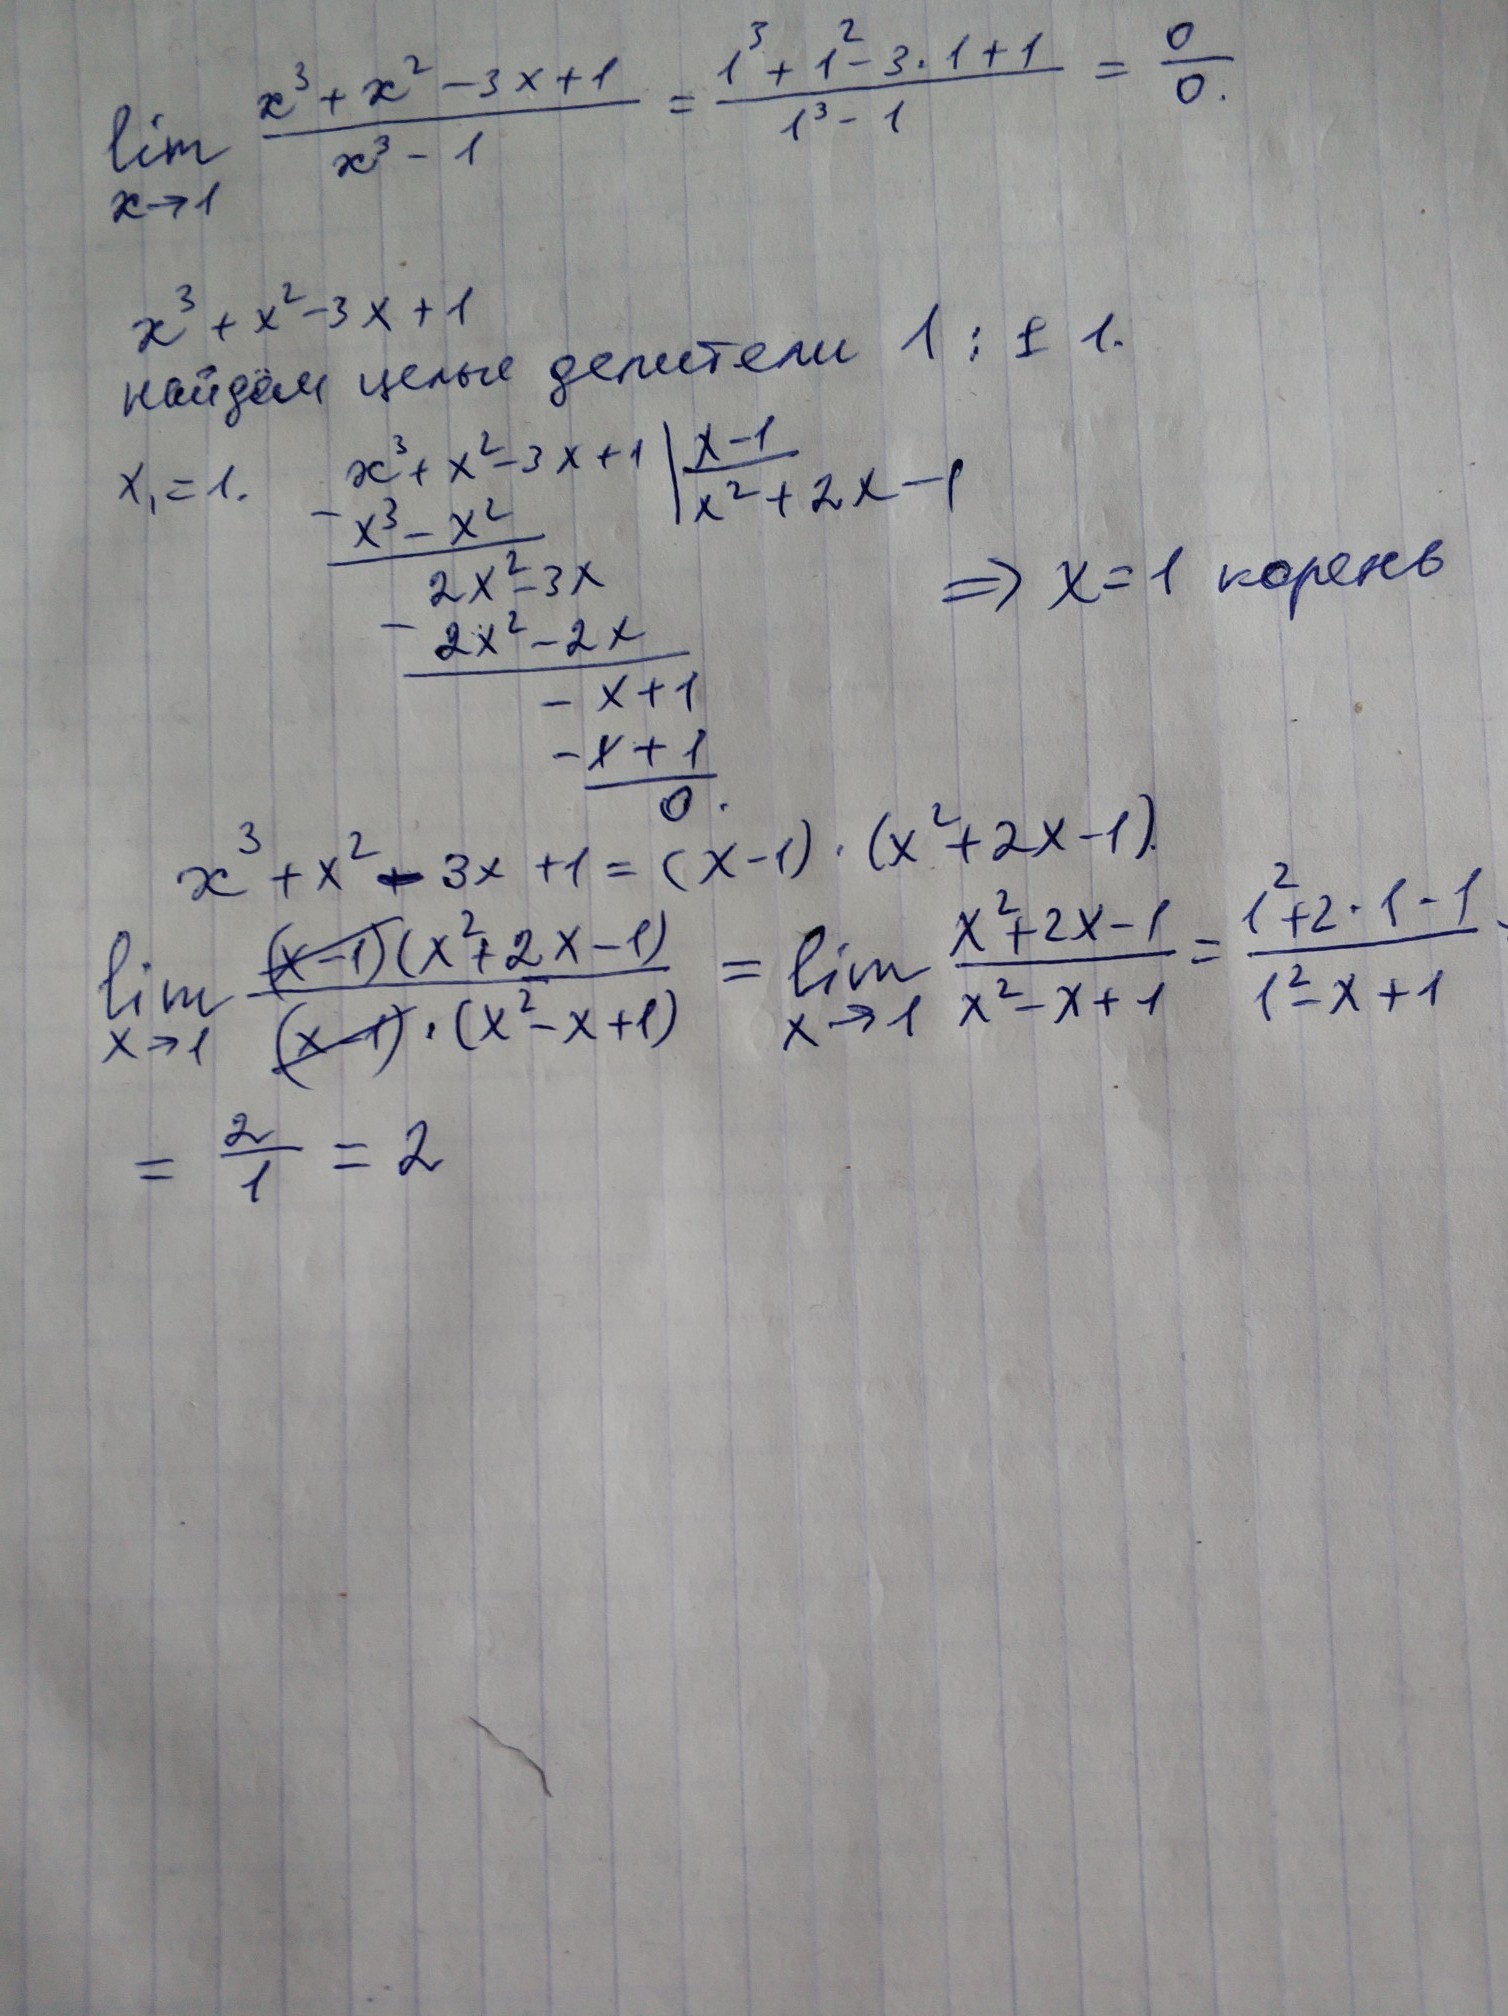 lim x→1 (x³ + x² - 3x + 1)/(x³ - 1) = (1³ + 1² - 3·1 + 1)/(1³ - 1) = 0/0.
x³ + x² - 3x + 1
найдём целые делители 1 : ± 1.
x₁ = 1. x³ + x² - 3x + 1 | x - 1
- x³ - x² | x² + 2x - 1
2x² - 3x ⇒ x = 1 корень
- 2x² - 2x
- x + 1
- x + 1
0.
x³ + x² - 3x + 1 = (x - 1) · (x² + 2x - 1).
lim x→1 (x - 1)(x² + 2x - 1)/(x - 1)·(x² - x + 1) = lim x→1 (x² + 2x - 1)/(x² - x + 1) = (1² + 2·1 - 1)/(1² - x + 1)
= 2/1 = 2